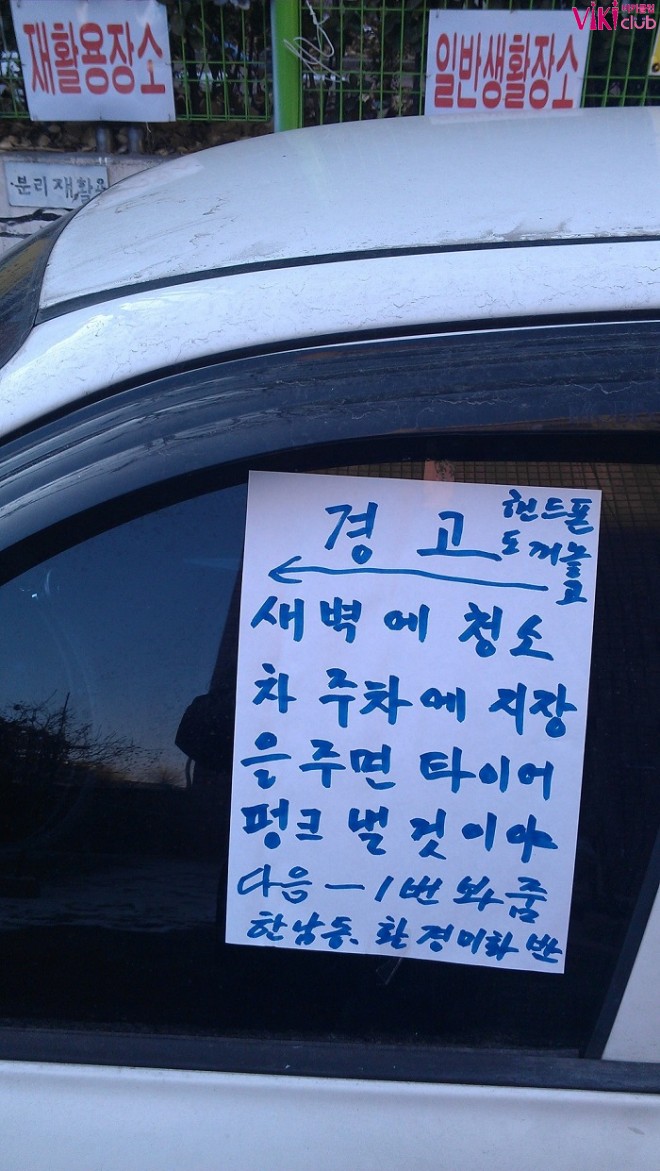 비키클럽
ViKi club
재활용장소
일반생활장소
·분리재활용
경고
핸드폰
도 꺼놓
고
새벽에 청소
차 주차에 지장
을 주면 타이어
펑크 낼 것이야
다음 - 1번 봐줌
한남동. 환경미화반